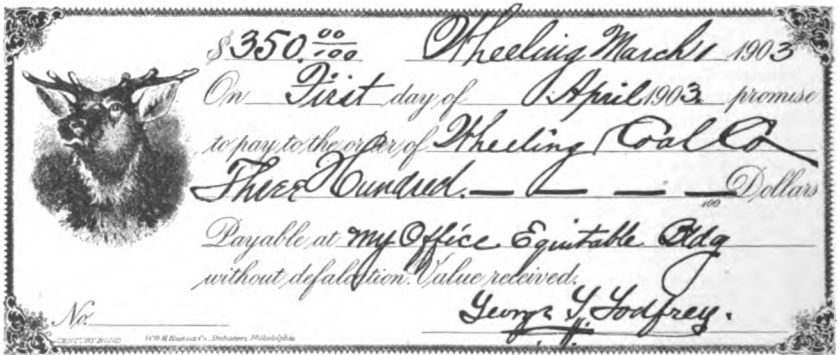 $350.00/100 Wheeling March 1 1903
On First day of April 1903. promise
to pay to the order of Wheeling Coal Co
Three Hundred. — — — — /100 Dollars
Payable, at my Office Equitable Bldg
without defalcation. Value received.
George Godfrey.
No.
CENTURY BOND Stationers, Philadelphia